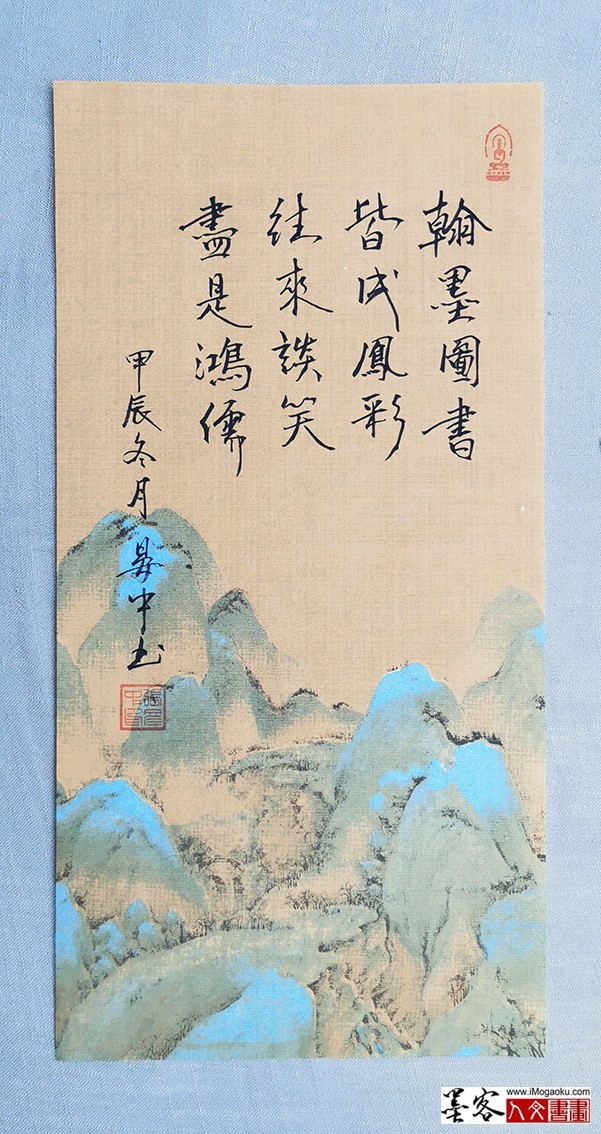 翰墨圖書
皆成鳳彩
往來談笑
盡是鴻儒
甲辰冬月 中书
墨客
www.iMogaoku.com
人文書畫